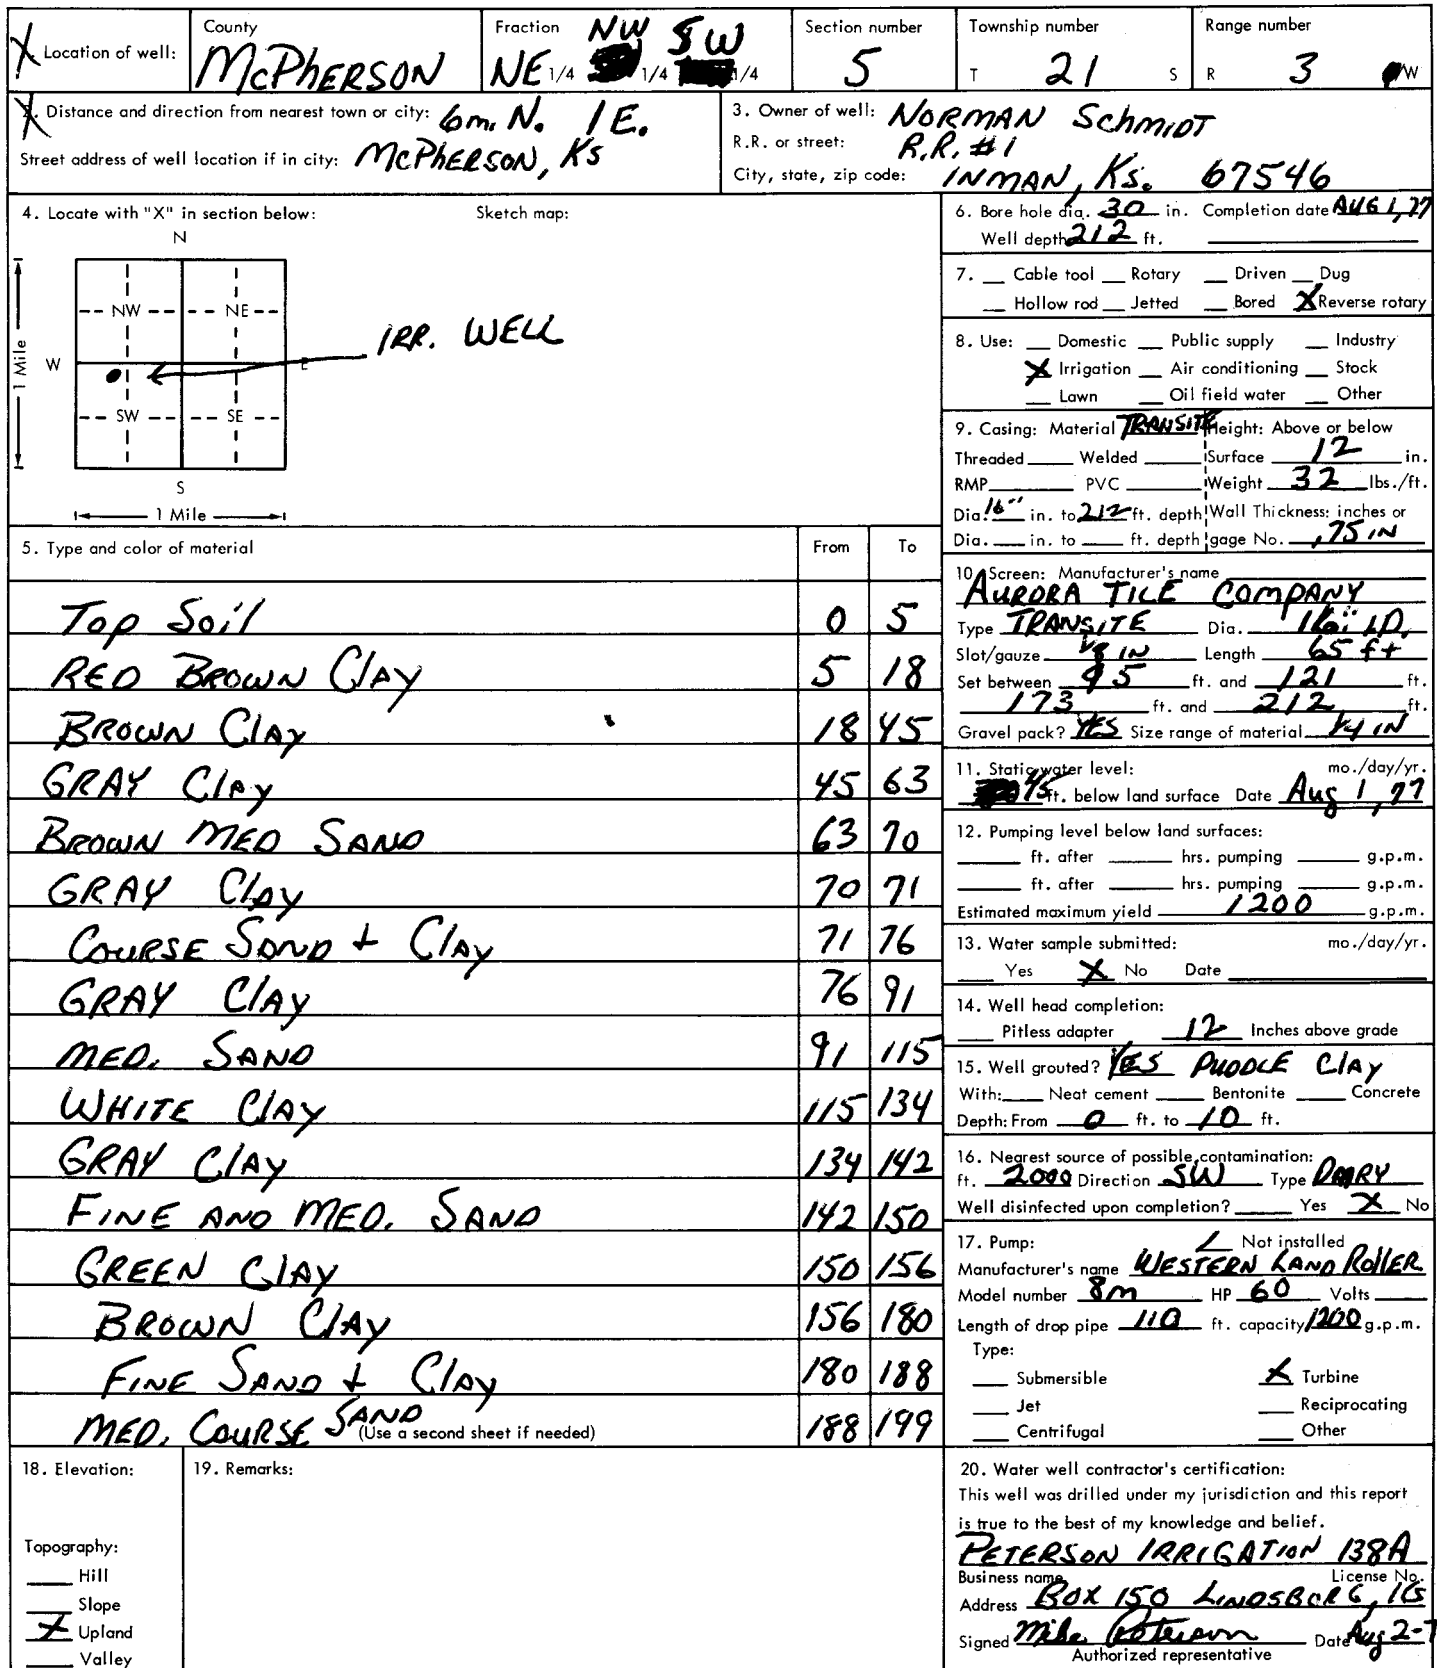 Location of well:
County
McPHERSON
Fraction
NW SW
NE 1/4 1/4 1/4
Section number
5
Township number
T 21 S
Range number
R 3 W
Distance and direction from nearest town or city: 6m. N. 1E.
Street address of well location if in city: McPHERSON, Ks
3. Owner of well: NORMAN SchmiDT
R.R. or street: R.R. #1
City, state, zip code: INMAN, Ks. 67546
4. Locate with "X" in section below:
Sketch map:
N
NW NE
W E
SW SE
S
1 Mile
1 Mile
IRR. WELL
5. Type and color of material From To
Top Soil 0 5
RED BROWN Clay 5 18
BROWN Clay 18 45
GRAY Clay 45 63
BROWN MED SAND 63 70
GRAY Clay 70 71
COURSE SAND + Clay 71 76
GRAY Clay 76 91
MED. SAND 91 115
WHITE Clay 115 134
GRAY Clay 134 142
FINE AND MED. SAND 142 150
GREEN Clay 150 156
BROWN Clay 156 180
FINE SAND + Clay 180 188
MED. COURSE SAND 188 199
(Use a second sheet if needed)
6. Bore hole dia. 30 in. Completion date AUG 1, 77
Well depth 212 ft.
7. Cable tool Rotary Driven Dug
Hollow rod Jetted Bored X Reverse rotary
8. Use: Domestic Public supply Industry
X Irrigation Air conditioning Stock
Lawn Oil field water Other
9. Casing: Material TRANSITE Height: Above or below
Threaded Welded Surface 12 in.
RMP PVC Weight 32 lbs./ft.
Dia. 16" in. to 212 ft. depth Wall Thickness: inches or
Dia. in. to ft. depth gage No. .75 IN
10. Screen: Manufacturer's name
AURORA TILE COMPANY
Type TRANSITE Dia. 16" I.D.
Slot/gauze 1/8 IN Length 65 ft
Set between 95 ft. and 121 ft.
173 ft. and 212 ft.
Gravel pack? YES Size range of material 1/4 IN
11. Static water level: mo./day/yr.
45 ft. below land surface Date Aug 1, 77
12. Pumping level below land surfaces:
ft. after hrs. pumping g.p.m.
ft. after hrs. pumping g.p.m.
Estimated maximum yield 1200 g.p.m.
13. Water sample submitted: mo./day/yr.
Yes X No Date
14. Well head completion:
Pitless adapter 12 Inches above grade
15. Well grouted? YES PUDDLE Clay
With: Neat cement Bentonite Concrete
Depth: From 0 ft. to 10 ft.
16. Nearest source of possible contamination:
ft. 2000 Direction SW Type DAIRY
Well disinfected upon completion? Yes X No
17. Pump: Not installed
Manufacturer's name WESTERN LAND ROLLER
Model number 8m HP 60 Volts
Length of drop pipe 110 ft. capacity 1200 g.p.m.
Type:
Submersible X Turbine
Jet Reciprocating
Centrifugal Other
18. Elevation:
Topography:
Hill
Slope
X Upland
Valley
19. Remarks:
20. Water well contractor's certification:
This well was drilled under my jurisdiction and this report
is true to the best of my knowledge and belief.
PETERSON IRRIGATION 138A
Business name License No.
Address BOX 150 LINDSBORG, Ks
Signed Mike Peterson Date Aug 2-7
Authorized representative